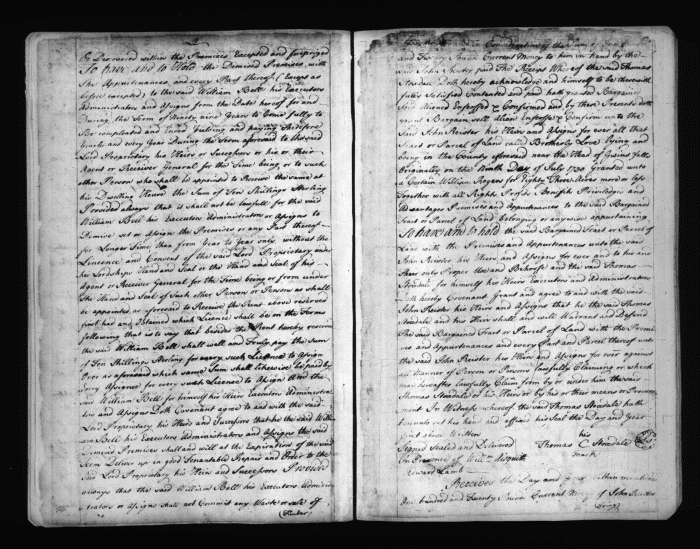 be Discovered within the Premises Excepted and foreprized
To have and to Hold the Demised Premises with
The Appurtenances and every Part thereof (Except as
before excepted) to the said William Bell his Executors
Administrators and Assigns from the Date hereof for and
During the Term of Ninety nine Years to Come fully to
be compleated and Ended Yeilding and paying therefore
Yearly and every Year During the Term aforesaid to the said
Lord Proprietary his Heirs or Successors or his or their
Agent or Receiver General for the time being or to such
other Person who shall be appointed to Receive the same at
his Dwelling House the Sum of Ten Shillings Sterling
Provided always that it shall not be lawfull for the said
William Bell his Executors Administrators or Assigns to
Demise set or Assign the Premises or any Part thereof
for Longer Time than from Year to Year only without the
Lincence and Consent of the said Lord Proprietary under
his Lordships Hand and Seal or the Hand and Seal of his
Agent or Receiver General for the Time being or from under
the Hand and Seal of such other Person or Persons as shall
be appointed as aforesaid to Receive the Rent above reserved
first had and Obtained which Licence shall be on the Terms
following that is to say that besides the Rent hereby reserved
the said William Bell shall well and Truly pay the Sum
of Ten Shillings Sterling for every such Licence to Assign
Over as aforesaid which same Sum shall likewise be paid by
every Assignee for every such Licence to Assign And the
said William Bell for himself his Heirs Executors Administra
tors and Assigns Doth Covenant agree to and with the said
Lord Proprietary his Heirs and Successors that he the said Willi
am Bell his Executors Administrators and Assigns the said
Demised Premises shall and will at the Expiration of the said
Term Deliver up in good Tenantable Repair and Order to the
said Lord Proprietary his Heirs and Successors Provided
always that the said William Bell his Executors Adminis
trators or Assigns shall not Commit any Waste or sale of
(Timber)
Consideration of the Sum of
and Twenty Pounds Current Money to him in hand by the
said John Reister paid the Receipt Whereof the said Thomas
Stocsdale Doth hereby acknowledge and himself to be therewith
fully Satisfied Contented and paid hath granted Bargained
Sold Aliened Enfeoffed & Confirmed and by these Presents doth
grant Bargain sell Alien Enfeoff & Confirm unto the
said John Reister his Heirs and Assigns for ever all that
Tract or Parcel of Land called Brotherly Love Lying and
being in the County aforesaid near the Head of Gwins falls
Originally on the Ninth Day of July 1730 Granted unto
a Certain William Rogers for Eighty Three Acres more or less
Together with all Rights Profits Benefits Priviledges and
Advantages Premises and Appurtenances to the said Bargained
Tract or Parcel of Land belonging or anywise appurtaining
To have and to hold the said Bargained Tract or Parcel of
Land with the Premises and Appurtenances unto the said
John Reister his Heirs and Assigns for ever and to his and
Their only Proper Use and Behoof and the said Thomas
Stocsdale for himself his Heirs Executors and Administrators
Doth hereby Covenant Grant and agree to and with the said
John Reister his Heirs and Assigns that he the said Thomas
Stocsdale and his Heirs shall and will Warrant and Defend
the said Bargained Tract or Parcel of Land with the Premi
ses and Appurtenances and every Part and Parcel thereof unto
the said John Reister his Heirs and Assigns for ever against
all Manner of Person or Persons Lawfully Claiming or which
may hereafter Lawfully Claim from by or under him the said
Thomas Stocsdale or his Heirs or by his or their means or Procure
ment In Witness whereof the said Thomas Stocsdale hath
hereunto set his hand and affixed his Seal the Day and Year
first above Written
Signed Sealed and Delivered
his
Thomas Stocsdale
mark
In Presence of
Edward Lamb
Received the Day and Year within mentioned
One hundred and Twenty Pounds Currant Money of John Reister